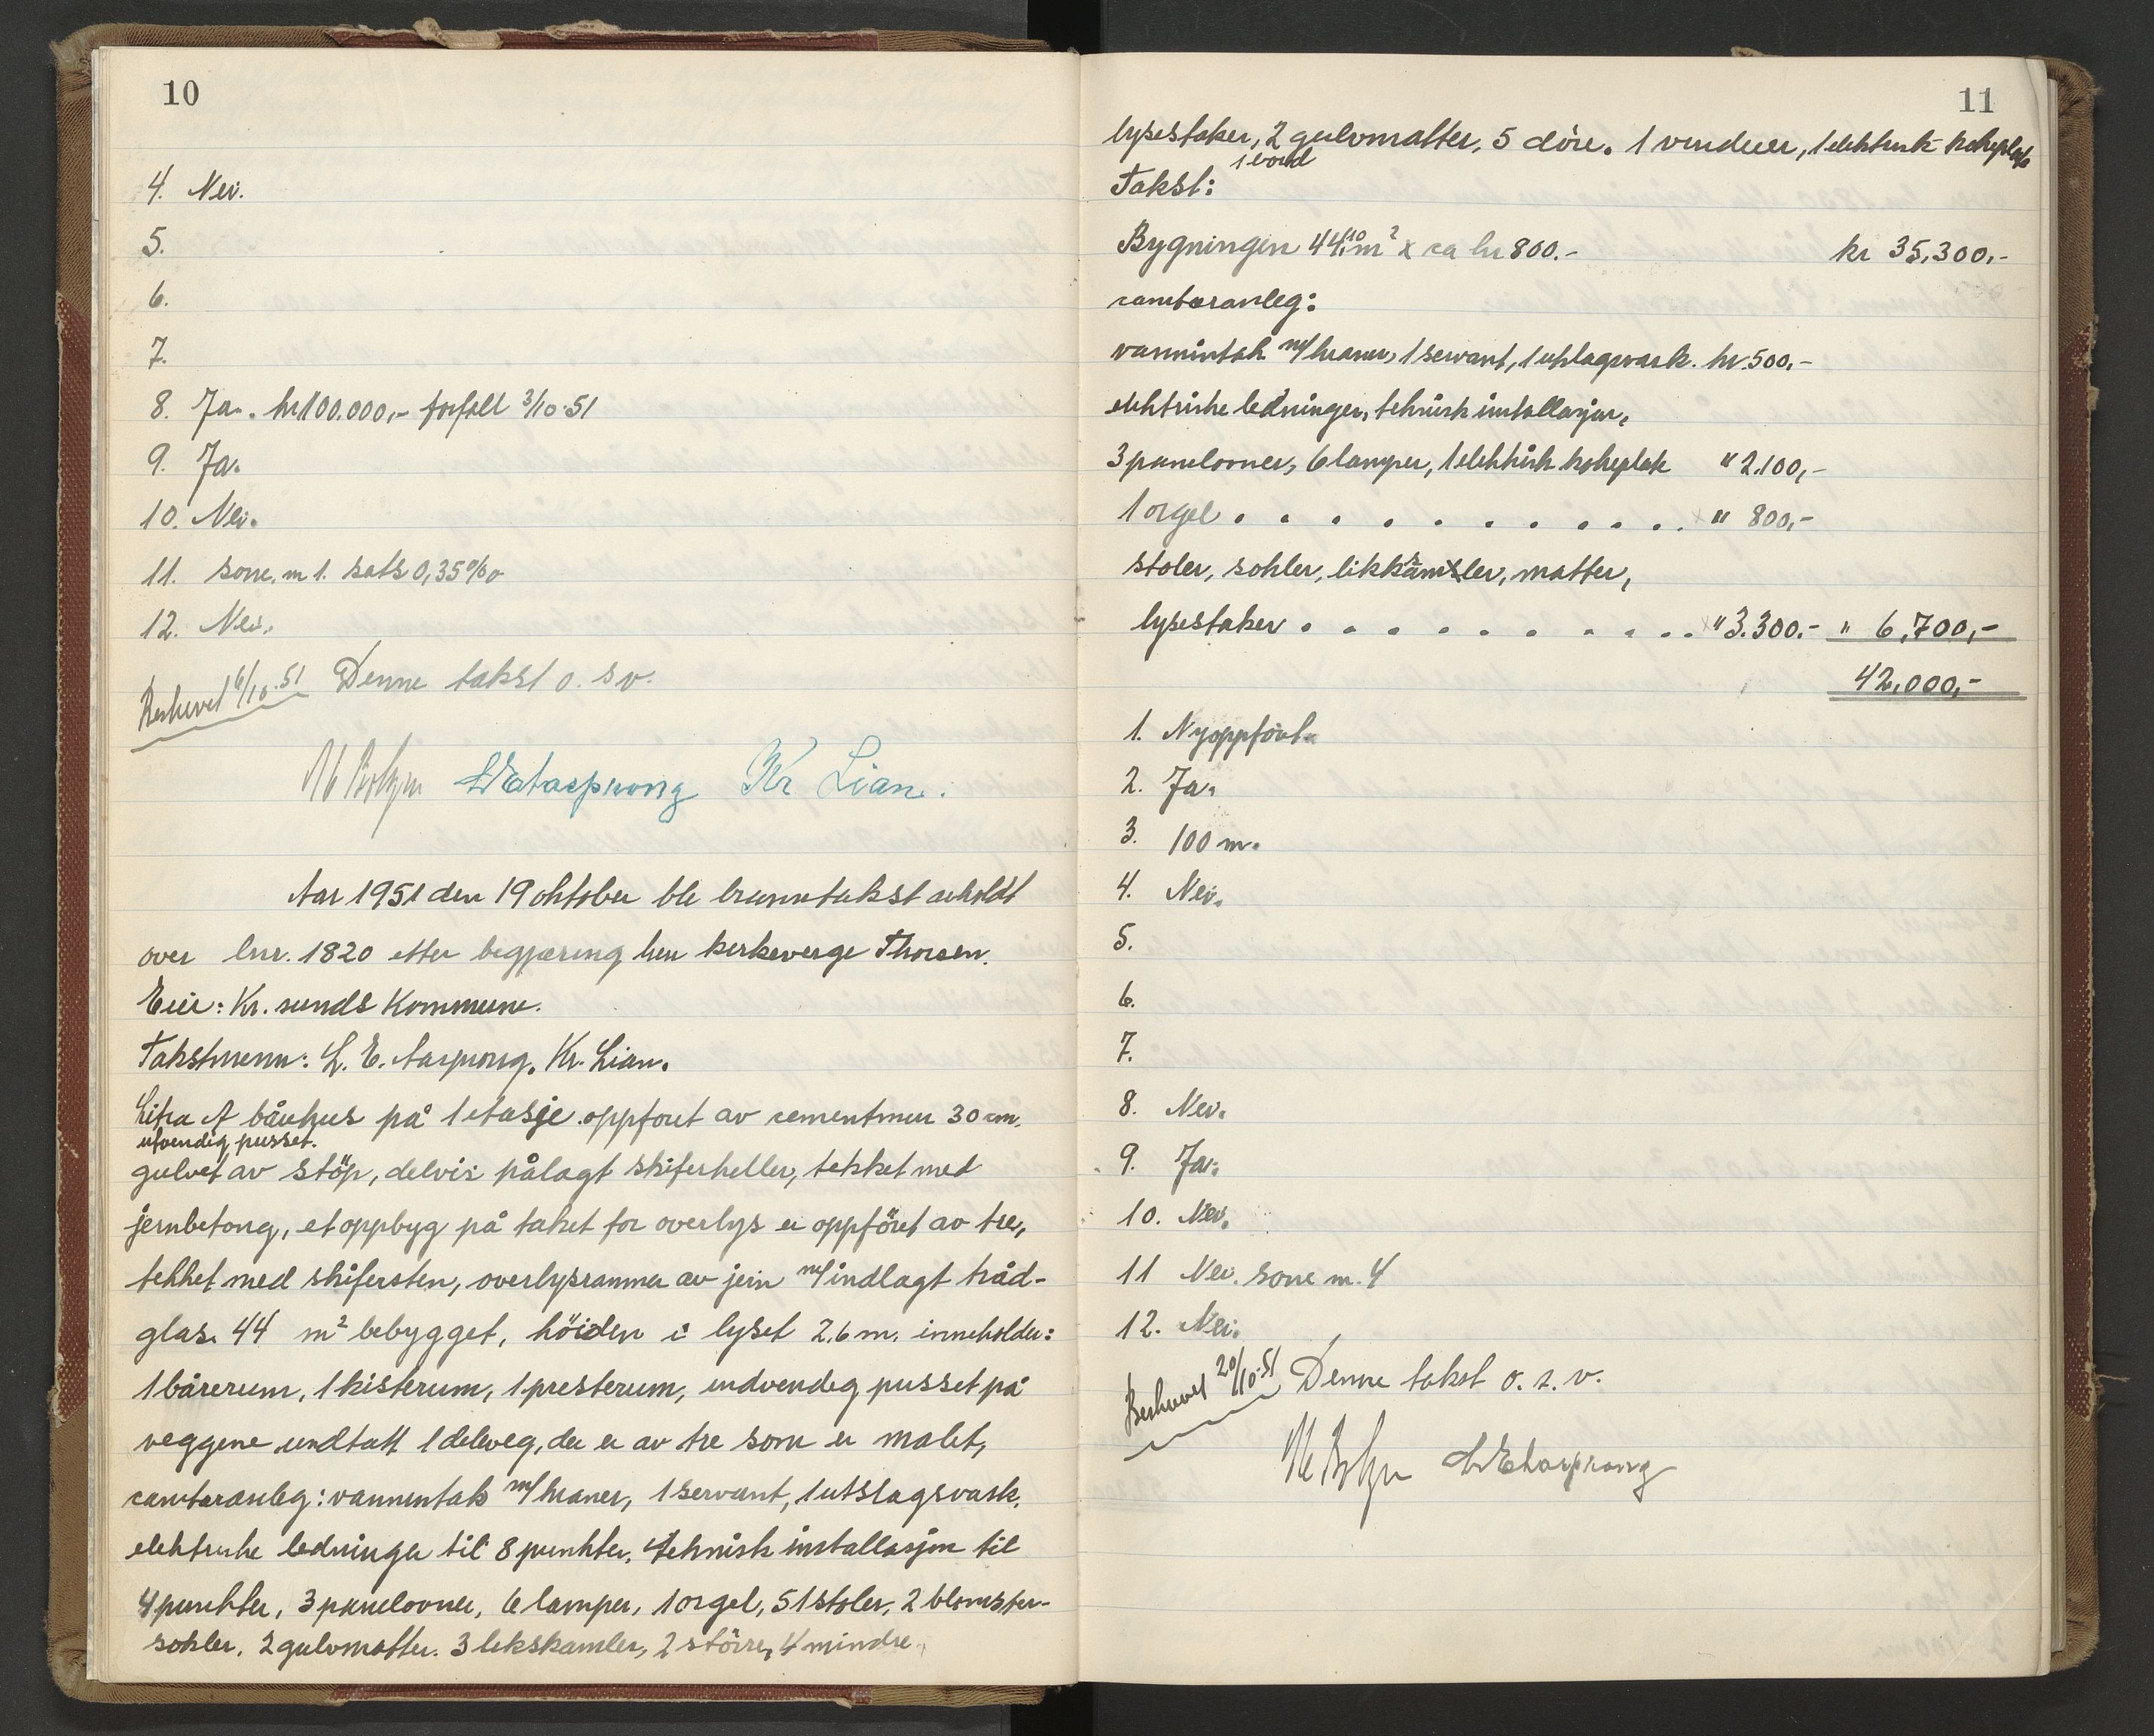 10
4. Nei.
5.
6.
7.
8. Ja. kr 100.000,- forfall 3/10-51
9. Ja.
10. Nei.
11. sone. m 1. sats 0,35‰
12. Nei.
Beskrevet 6/10.51 Denne takst o. s v.
LEAasprong Kr Lian.
Aar 1951 den 19 oktober ble branntakst avholdt
over bnr. 1820 etter begjæring herr kirkeverge Thorsen.
Eier: Kr. sunds Kommune.
Takstmenn: L. E. Aasprong. Kr. Lian.
Litra A bårhus på 1 etasje oppført av cementmur 30 cm.
utvendig pusset.
gulvet av støp, delvis pålagt skiferheller, tekket med
jernbetong, et oppbyg på taket for overlys er oppført av tre,
tekket med skifersten, overlysrammer av jern m/indlagt tråd-
glas. 44 m² bebygget, höiden i lyset 2,6 m. inneholder:
1 bårerum, 1 kisterum, 1 presterum, indvendig pusset på
veggene undtatt 1 delveg, der er av tre som er malt,
sanitæranleg: vanninntak m/kraner, 1 servant, 1 utslagsvask.
elektriske ledninger til 8 punkter, teknisk installasjon til
4 punkter, 3 panelovner, 6 lamper, 1 orgel, 51 stoler, 2 blomster-
sokler. 2 gulvmatter. 3 likskamler, 2 större, 4 mindre
11
lysestaker, 2 gulvmatter, 5 döre. 1 vinduer, 1 elektrisk kokeplate
1 bord
Takst:
Bygningen 44,10 m² x ca kr 800.- kr 35,300,-
sanitæranleg:
vanninntak m/kraner, 1 servant, 1 utslagsvask. kr. 500,-
elektriske ledninger, teknisk installasjon,
3 panelovner, 6 lamper, 1 elektrisk kokeplate " 2.100,-
1 orgel . . . . . . . . . . . " 800,-
stoler, sokler, likskamler, matter,
lysestaker . . . . . . . . . . " 3.300.- " 6,700,-
42,000,-
1. Nyoppfört.
2. Ja.
3. 100 m.
4. Nei.
5.
6.
7.
8. Nei.
9. Ja.
10. Nei.
11 Nei. sone m. 4
12. Nei.
Beskrevet 20/10-51 Denne takst o. s. v.
LEAasprong